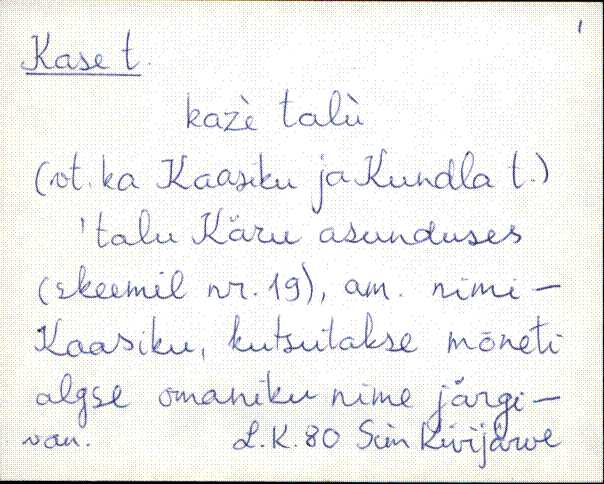 1
Kase t.
kazè talù
(vt. ka Kaasiku ja Kundla t.)
'talu Käru asunduses
(skeemil nr. 19), am. nimi –
Kaasiku, kutsutakse mõneti
algse omaniku nime järgi –
van. L.K. 80 Siin Kivijärve